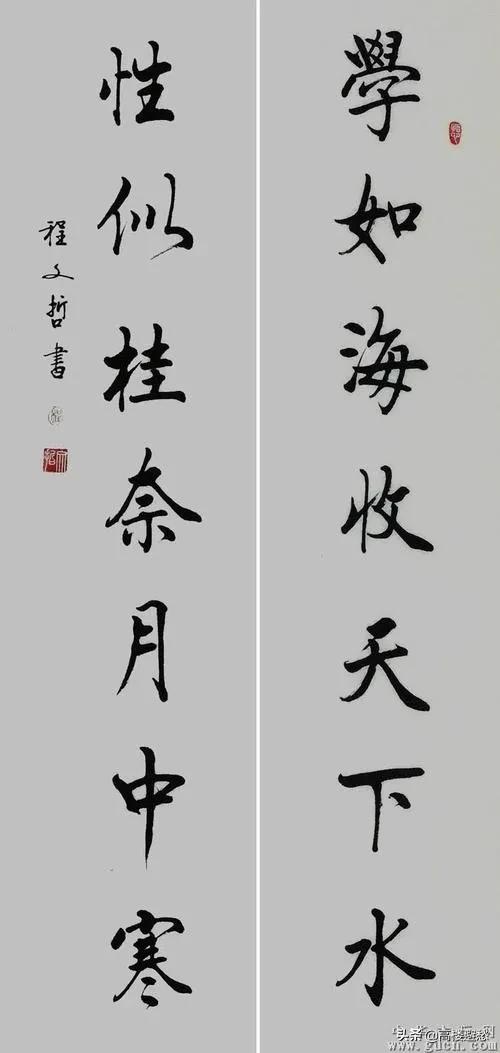 學如海收天下水
性似桂奈月中寒
程文哲書
头条@高楼愁愁
www.gucn.com